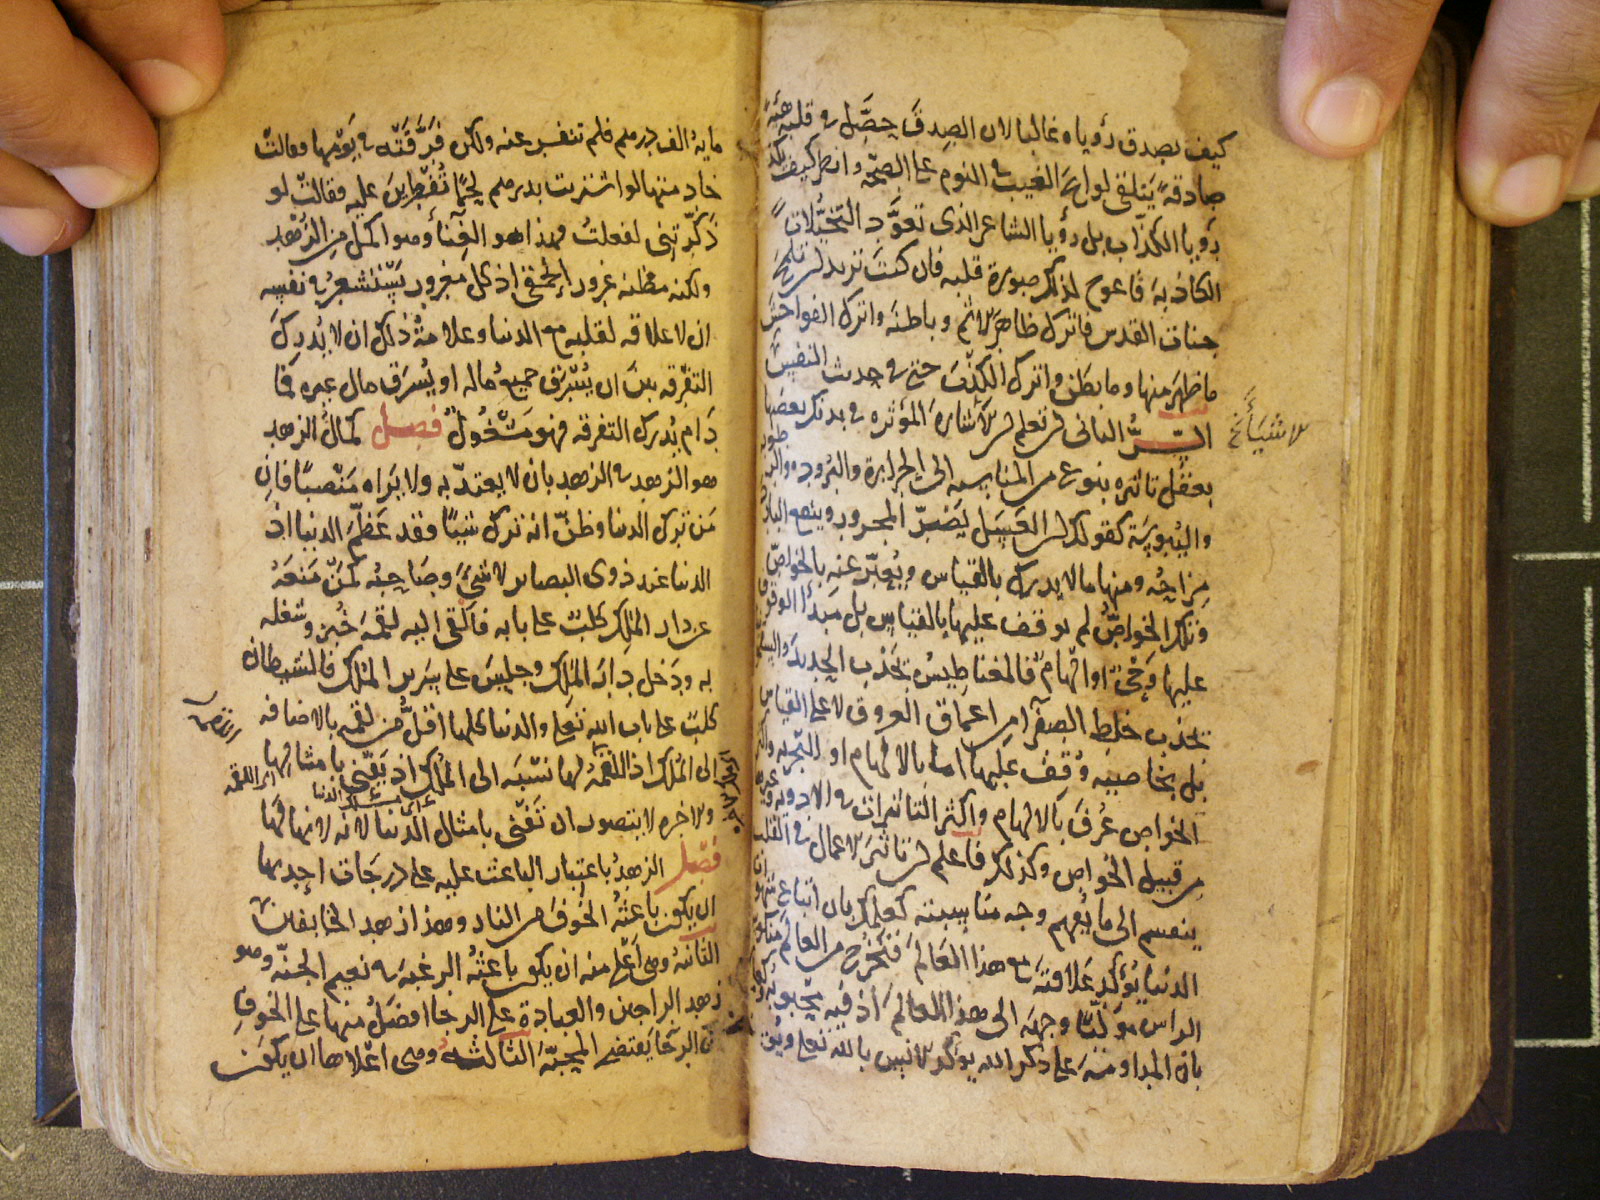 كيف يصدق رؤياه غالبا لان الصدق حصّل في قلبه هيئةً
صادقةً يتلقى لوائح الغيب في النوم على الصحّة وانظر كيف يكذ
رؤيا الكذّاب بل رؤيا الشاعر الذي تعوّد التخيّلات
الكاذبة فاعوج لذلك صورة قلبه فان كنت تريد ان تلمح
جنات القدس فاترك ظاهر الاثم وباطنه واترك الفواحش
ما ظهر منها وما بطن واترك الكذب حتى في حديث النفس
السّرّ الثاني ان تعلم ان الاشياء المؤثرة في بدنك بعضها
لاشياء خ
يعقل تاثيره بنوع من المناسبة الى الحرارة والبرودة والرطوبة
واليبوسة كقولك ان العسل يضرّ المحرور وينفع البارد
مزاجُه ومنها ما لا يدرك بالقياس ويُعبّر عنه بالخواصّ
وتلك الخواصّ لم يوقف عليها بالقياس بل مبدأ الوقوف
عليها وحيٌ او الهامٌ فالمغناطيس يجذب الحديد والسقمونيا
يجذب خلط الصفرا من اعماق العروق لا على القياس
بل بخاصيّة وُقِف عليها اما بالالهام او التجربة واكثر
الخواص عُرف بالالهام واكثر التاثيرات في الادوية وغيرها
من قبيل الخواص وكذلك فاعلم ان تاثير الاعمال في القلب
ينقسم الى ما يُفهم وجه مناسبته كعلمك بان اتباع شهوات
الدنيا يُؤكد علاقته مع هذا العالم فيخرج من العالم منكوس
الراس مولّيا وجهه الى هذا العالم اذ فيه محبوبُه
بان المداومة على ذكر الله يؤكد الانس بالله تعلى ويُو
ماية الف درهم فلم تنفر عنه ولكن فرّقَتْه في يَوْمها فقالتْ
خادمتها لو اشتريت بدرهم لحمًا تُفْطِرين عليه فقالتْ لو
ذكّرتِني لفعلتُ فهذا هو الغِنَأ وهو اكمل من الزُهْد
ولكنه مظنة غرور الحمقى اذ كل مغرور يَسْتشعر في نفسه
ان لا علاقه لقلبه مع الدنيا وعلامةُ ذلك ان لا يُدرِكَ
التفرقه بين ان يُسْرق جميع ماله او يُسرق مال غيره فما
دَام يُدرك التفرقه فهو مَشْغُولٌ فصل كمالُ الزهد
هو الزهد في الزهد بان لا يعتدّ به ولا يَراه مَنْصبًا فان
مَن تَرك الدنيا وظنّ انه ترك شيئا فقد عَظّمَ الدنيا اذ
الدنيا عند ذوي البصائر لا شيءَ وصاحِبُه كمَن مَنعَهُ
عن دار المَلِك كلبٌ على بابه فالقى اليه لقمةَ خُبز وشغله
به ودخل دار المَلِك وجلسَ على سرير المَلك فالشيطان
كلبٌ على باب الله تعلى والدنيا كلها اقلُّ من لقمه بالاضافه
اللقمة
الى المُلك اذ اللقمةُ لها نسْبَة الى المُلك اذ يَفْنى بامثالها
ولاخره لا يتصور ان تَفْنى بامثال الدنيا لانه لا نهاية لها
فصل الزهدُ باعتبار الباعث عليه على درجات احدها
ان يكون باعثهُ الخوفَ من النار وهذا زهد الخايفين
الثانيةُ وهي اعْلى منه ان يكون باعثُهُ الرغبة في نعيم الجنّه وهو
زهد الراجين والعبادة على الرجا افضلُ منها على الخوف
لان الرجآ يقتضي المحبّة الثالثة وهي اعْلاها ان يكون